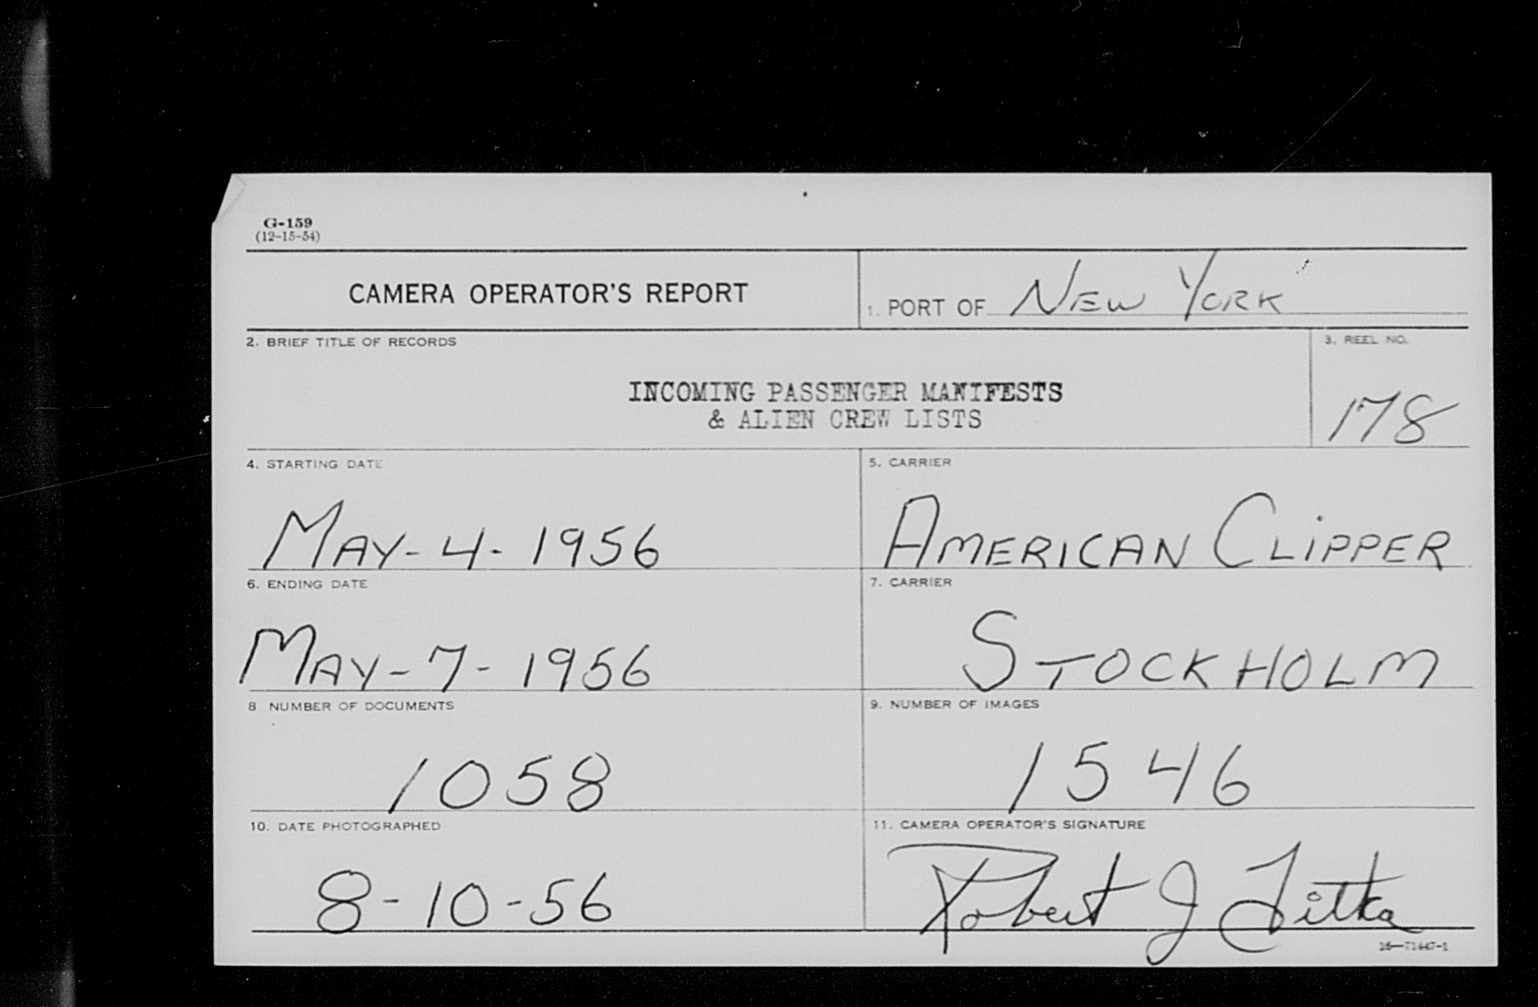 G-159
(12-15-54)
CAMERA OPERATOR'S REPORT
1. PORT OF NEW YORK
2. BRIEF TITLE OF RECORDS
3. REEL NO.
INCOMING PASSENGER MANIFESTS
& ALIEN CREW LISTS
178
4. STARTING DATE
5. CARRIER
MAY-4-1956
AMERICAN CLIPPER
6. ENDING DATE
7. CARRIER
MAY-7-1956
STOCKHOLM
8 NUMBER OF DOCUMENTS
9. NUMBER OF IMAGES
1058
1546
10. DATE PHOTOGRAPHED
11. CAMERA OPERATOR'S SIGNATURE
8-10-56
Robert J
16—71447-1